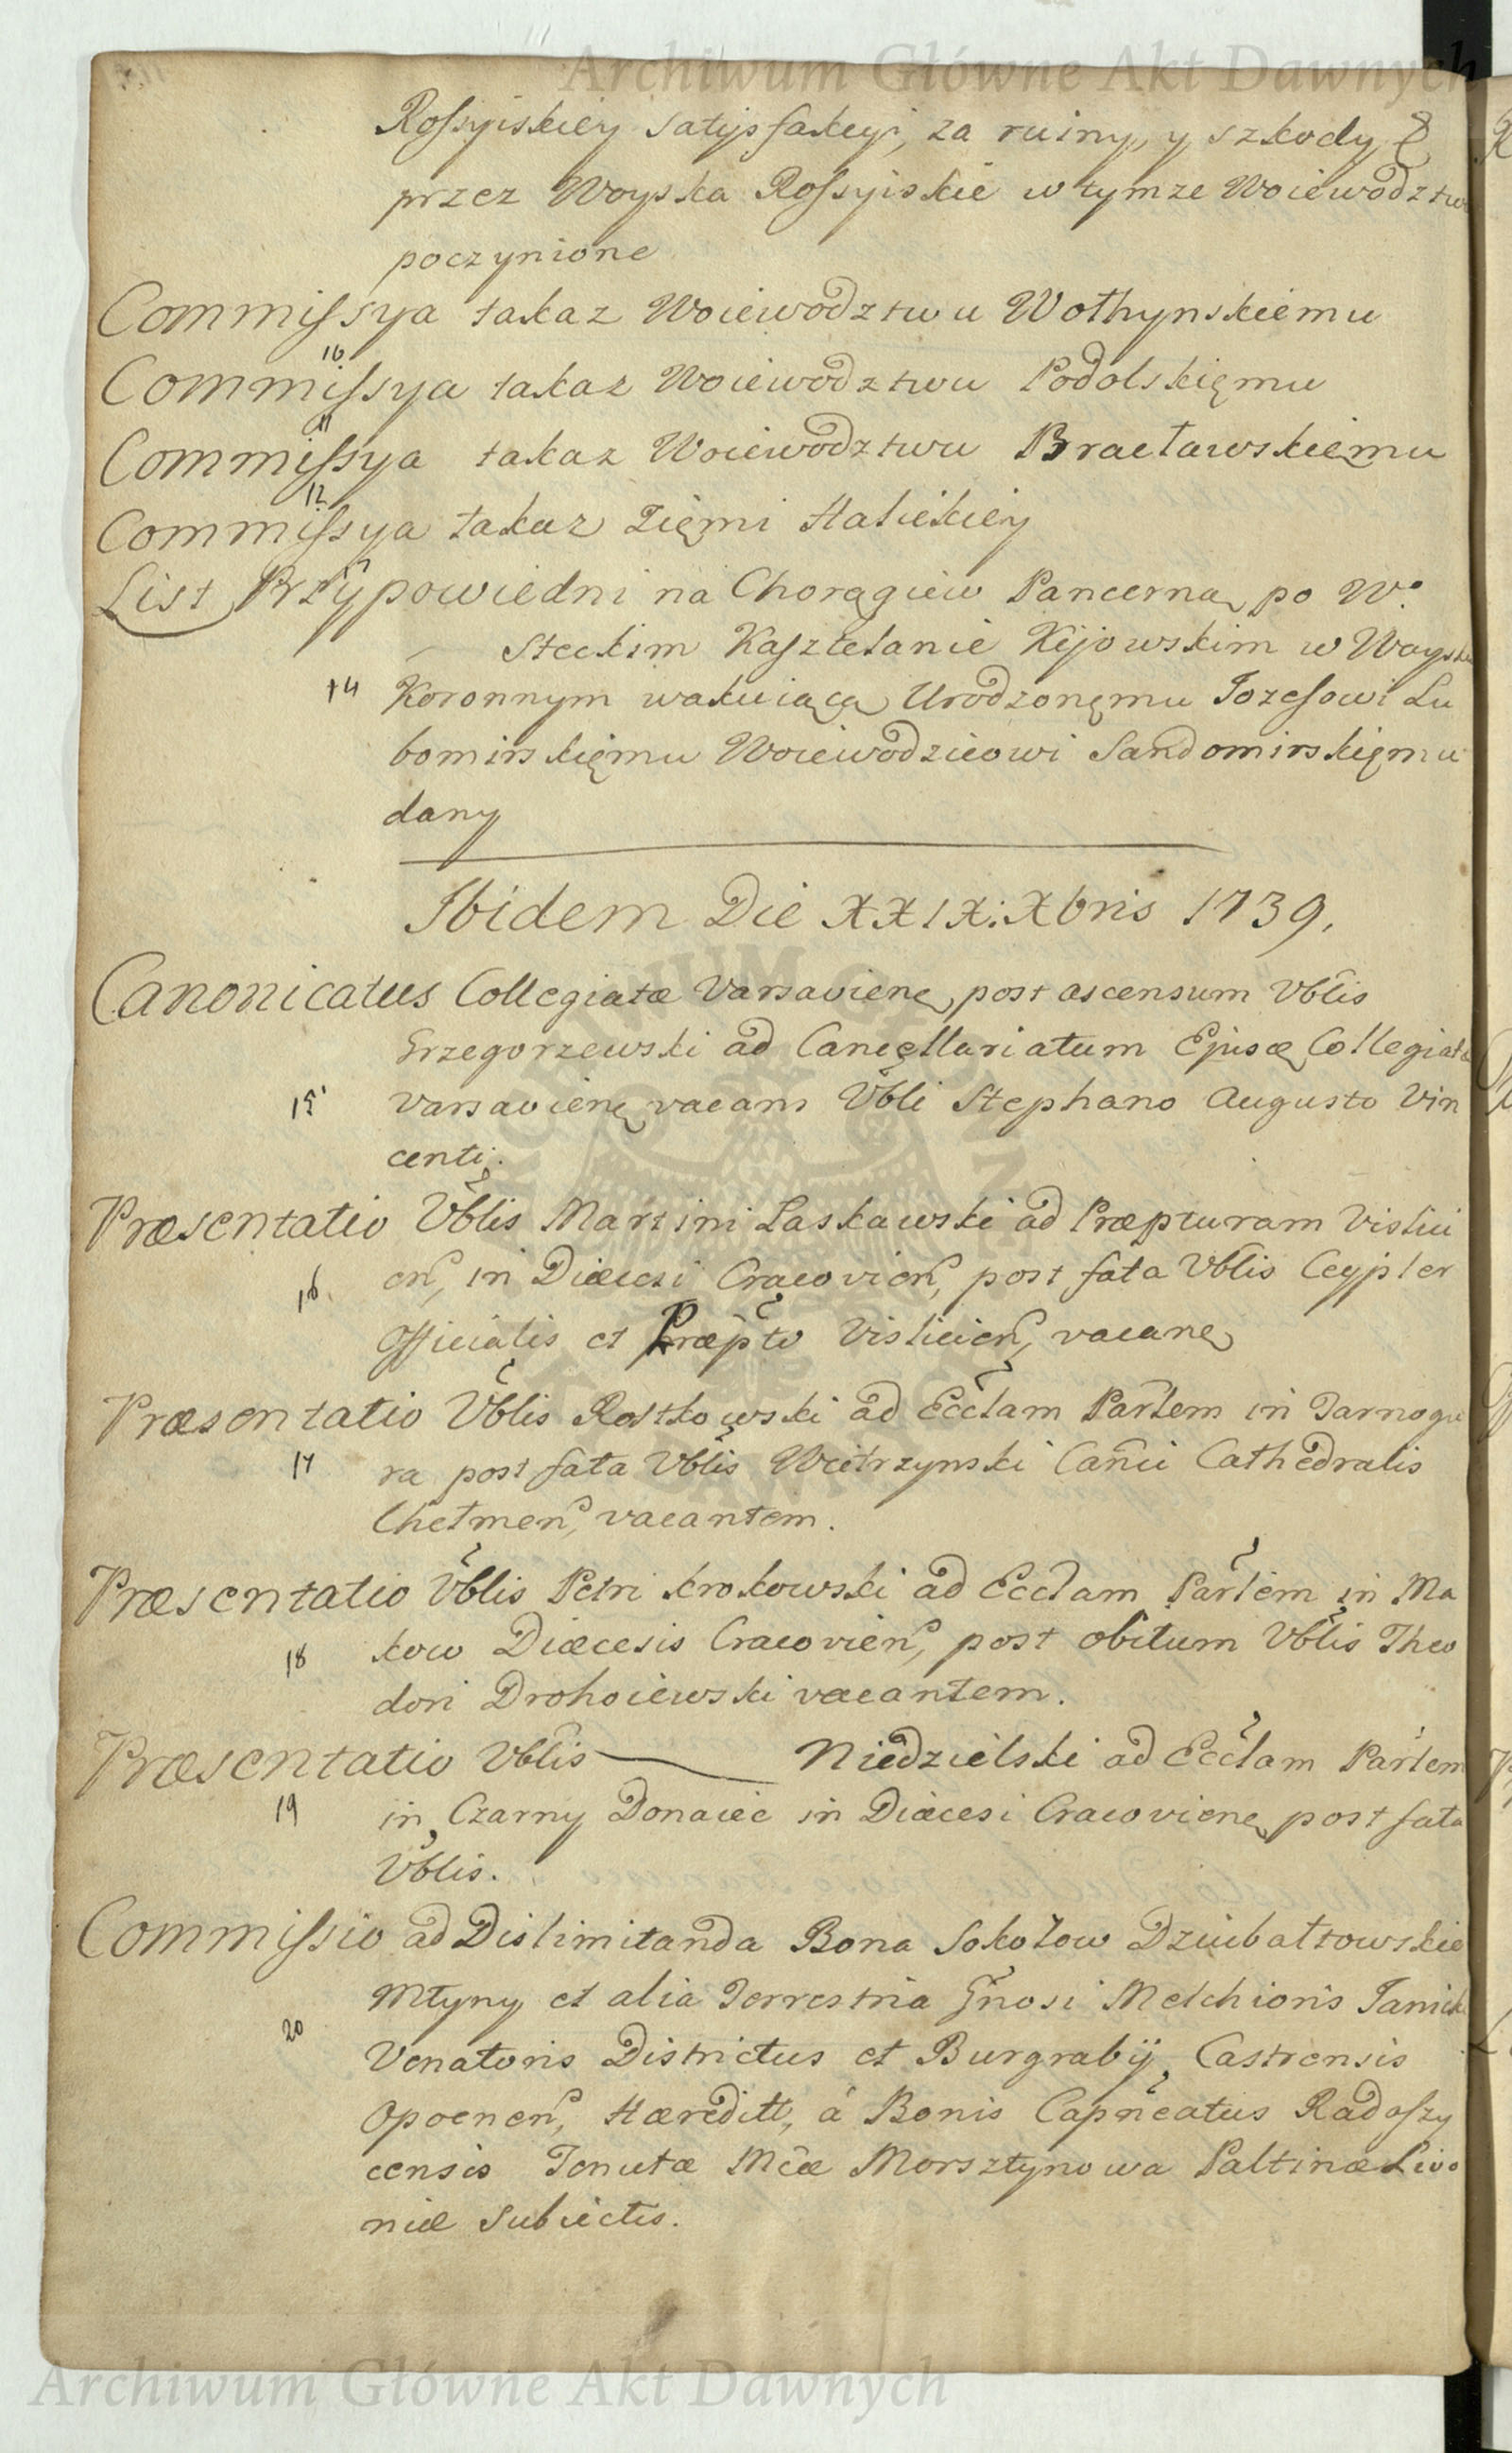 Archiwum Główne Akt Dawnych
Rossyiskiey satysfakcyi, za ruiny, y szkody
przez Woyska Rossyiskie w tymze Woiewodztw
poczynione
Commissya takaz Woiewodztwu Wołhynskiemu
10
Commissya takaz Woiewodztwu Podolskięmu
11
Commissya takaz Woiewodztwu Bracławskięmu
12
Commissya takaz Zięmi Halickiey
List Przypowiedni na Chorągiew Pancerną po W.
Steckim Kasztelanie Kijowskim w Woysku
14 Koronnym wakuiącą Urodzonęmu Jozefowi Lu
bomirskięmu Woiewodzicowi Sandomirskięmu
dany
Ibidem Die XXIX: Xbris 1739.
Canonicatus Collegiatæ Varsavienę post ascensum Vblis
Grzegorzewski ad Cancęllariatum Ejusę Collegiatæ
15 Varsavienę vacans Vbli Stephano Augusto Vin
centi.
Præsentatio Vblis Martini Laskawski ad Præpturam Vislici
16 eñ, in Diæcesi Cracovieñ, post fata Vblis Ceypler
Officialis et Præpto Vislicieñ, vacanę
Præsentatio Vblis Rostkowski ad Ecclam Parlem in Tarnogu
17 ra post fata Vblis Wietrzynski Canci Cathedralis
Chełmeñ, vacantem.
Præsentatio Vblis Petri Krokowski ad Ecclam Parlem in Ma
18 kow Diæcesis Cracovieñ, post obitum Vblis Theo
dori Drohoiewski vacantem.
Præsentatio Vblis Niedzielski ad Ecclam Parlem
19 in Czarny Donaiec in Diæcesi Cracovienę post fata
Vblis.
Commissio ad Dislimitanda Bona Sokołow Dziubałtowskie
Młyny et alia Terrestria Gnosi Melchioris Janick
20 Venatoris Districtus et Burgrabij Castrensis
Opocneñ, Hæreditt, á Bonis Capneatus Radoszy
censis Tenutæ Mcæ Morsztynowa Paltinæ Livo
niæ Subiectis.
Archiwum Główne Akt Dawnych